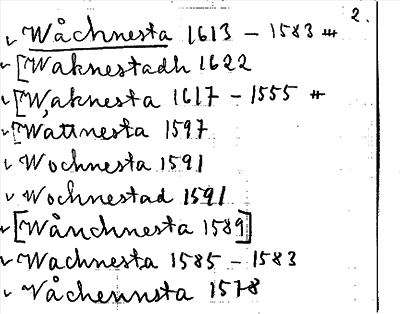 2.
✓ Wåchnesta 1613 – 1583 #
✓ [Waknestadh 1622
✓ [Waknesta 1617 – 1555 #
✓ [Wattnesta 1597
✓ Wochnesta 1591
✓ Wochnestad 1591
✓ [Wånchnesta 1589]
✓ Wachnesta 1585 – 1583
✓ Våchennsta 1578